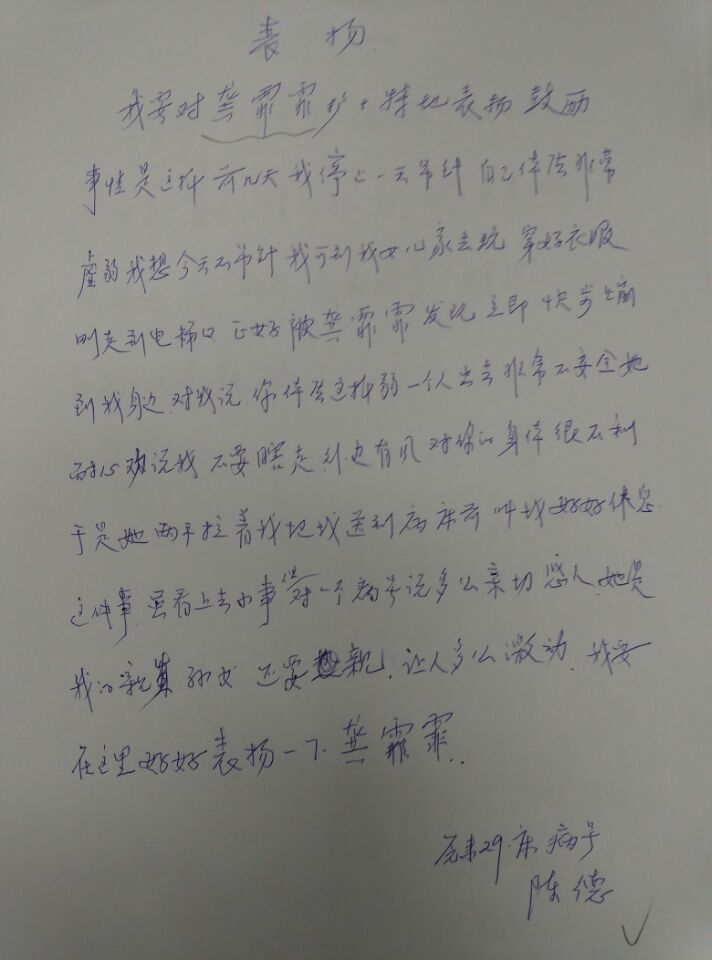 表扬
我要对龚霏霏护士特地表扬鼓励
事性是这样前几天我停止一天吊针自己体质非常
虚弱我想今天不吊针我可到我女儿家去玩 穿好衣服
刚走到电梯口 正好被龚霏霏发现 立即快步
到我身边.对我说.你体质这样弱一个人出去非常不安全她
耐心劝说我 不要瞎走.外边有风对你的身体很不利
于是她两手拉着我把我送到病床前叫我好好休息
这件事.虽看上去小事但对一个病号说多么亲切感人.她是
我的亲 孙女 还要亲.让人多么激动.我要
在这里好好表扬一下.龚霏霏..
29.床病号
陈德